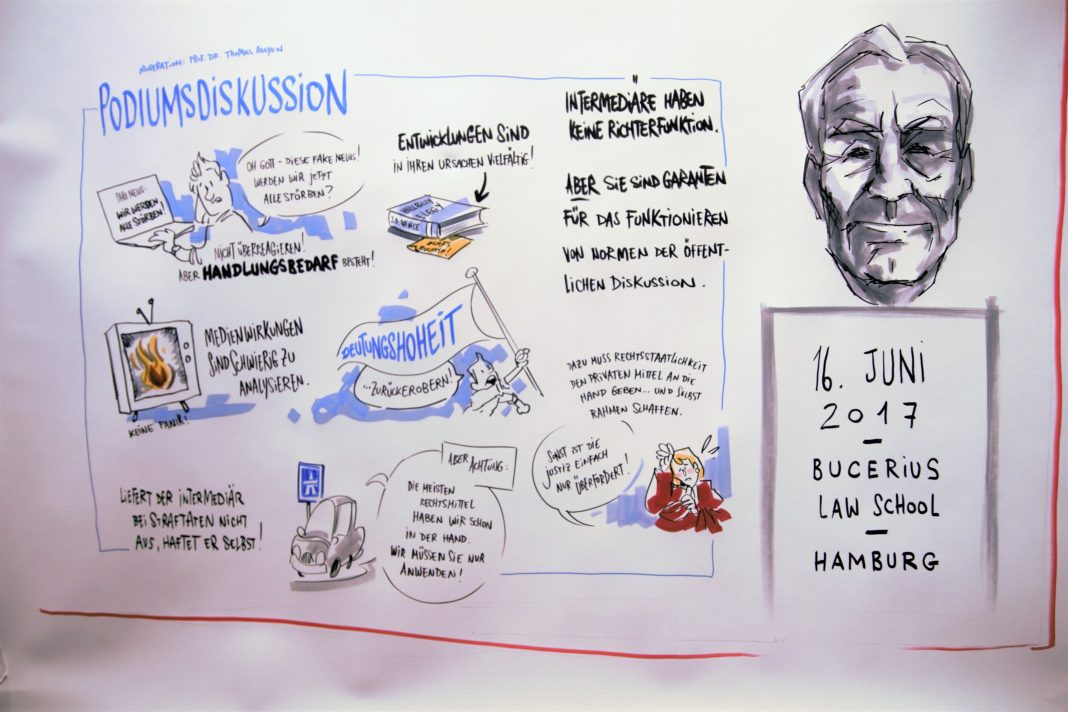 MODERATION: PROF. DR. THOMAS MAYEN
PODIUMSDISKUSSION
OH GOTT - DIESE FAKE NEWS!
WERDEN WIR JETZT
ALLE STÖRBEN?
FAKE NEWS:
WIR WERDEN
ALLE STÖRBEN!
NICHT ÜBERREAGIEREN!
ABER HANDLUNGSBEDARF BESTEHT!
ENTWICKLUNGEN SIND
IN IHREN URSACHEN VIELFÄLTIG!
HILLBILLY
ELEGY
J.D. VANCE
MEDIENWIRKUNGEN
SIND SCHWIERIG ZU
ANALYSIEREN.
KEINE PANIK!
DEUTUNGSHOHEIT
...ZURÜCKEROBERN!
LIEFERT DER INTERMEDIÄR
BEI STRAFTATEN NICHT
AUS, HAFTET ER SELBST!
ABER ACHTUNG:
DIE MEISTEN
RECHTSMITTEL
HABEN WIR SCHON
IN DER HAND.
WIR MÜSSEN SIE NUR
ANWENDEN!
INTERMEDIÄRE HABEN
KEINE RICHTERFUNKTION.
ABER SIE SIND GARANTEN
FÜR DAS FUNKTIONIEREN
VON NORMEN DER ÖFFENT-
LICHEN DISKUSSION.
DAZU MUSS RECHTSSTAATLICHKEIT
DEN PRIVATEN MITTEL AN DIE
HAND GEBEN... UND SELBST
RAHMEN SCHAFFEN.
SONST IST DIE
JUSTIZ EINFACH
NUR ÜBERFORDERT!
16. JUNI
2017
BUCERIUS
LAW SCHOOL
HAMBURG